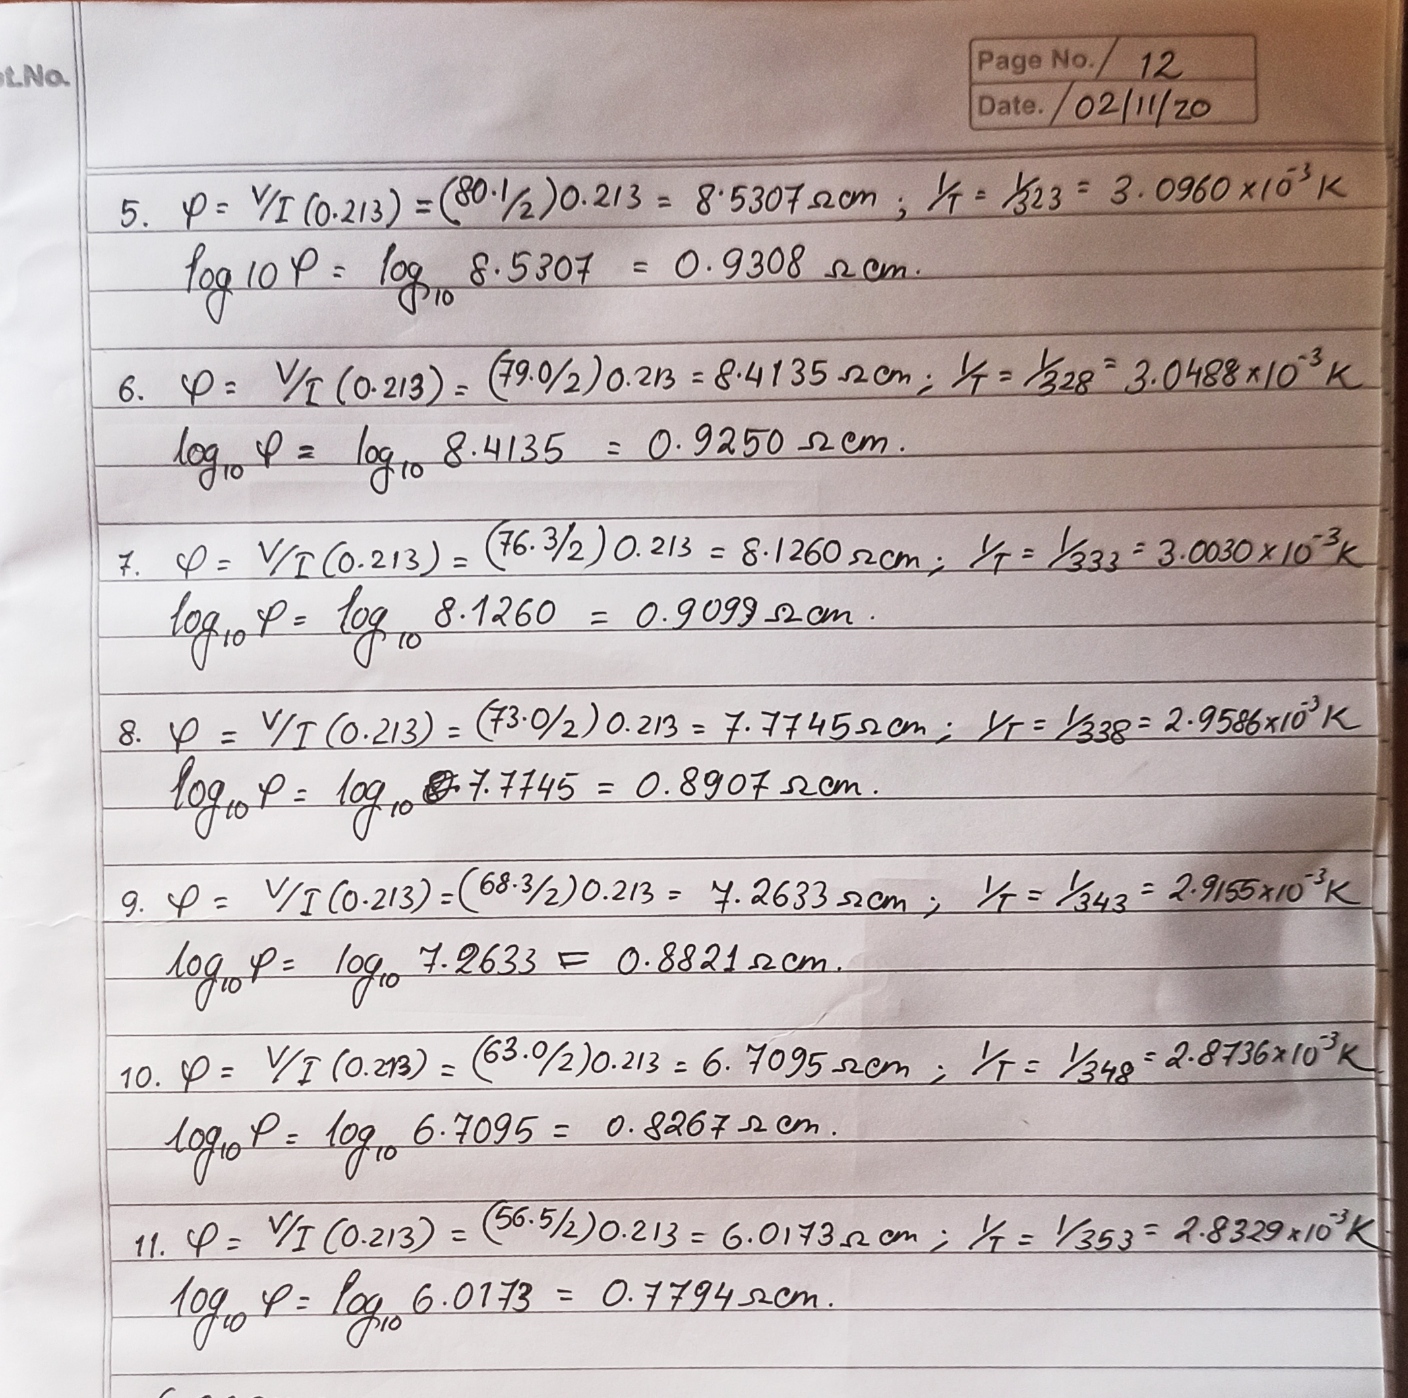 t.No.
Page No. / 12
Date. / 02/11/20
5. φ = V/I (0.213) = (80.1/2) 0.213 = 8.5307 Ωcm ; 1/T = 1/323 = 3.0960 × 10⁻³ K
log10 φ = log₁₀ 8.5307 = 0.9308 Ωcm.
6. φ = V/I (0.213) = (79.0/2) 0.213 = 8.4135 Ωcm ; 1/T = 1/328 = 3.0488 × 10⁻³ K
log₁₀ φ = log₁₀ 8.4135 = 0.9250 Ωcm.
7. φ = V/I (0.213) = (76.3/2) 0.213 = 8.1260 Ωcm ; 1/T = 1/333 = 3.0030 × 10⁻³ K
log₁₀ φ = log₁₀ 8.1260 = 0.9099 Ωcm.
8. φ = V/I (0.213) = (73.0/2) 0.213 = 7.7745 Ωcm ; 1/T = 1/338 = 2.9586 × 10⁻³ K
log₁₀ φ = log₁₀ 7.7745 = 0.8907 Ωcm.
9. φ = V/I (0.213) = (68.3/2) 0.213 = 7.2633 Ωcm ; 1/T = 1/343 = 2.9155 × 10⁻³ K
log₁₀ φ = log₁₀ 7.2633 = 0.8821 Ωcm.
10. φ = V/I (0.213) = (63.0/2) 0.213 = 6.7095 Ωcm ; 1/T = 1/348 = 2.8736 × 10⁻³ K
log₁₀ φ = log₁₀ 6.7095 = 0.8267 Ωcm.
11. φ = V/I (0.213) = (56.5/2) 0.213 = 6.0173 Ωcm ; 1/T = 1/353 = 2.8329 × 10⁻³ K
log₁₀ φ = log₁₀ 6.0173 = 0.7794 Ωcm.